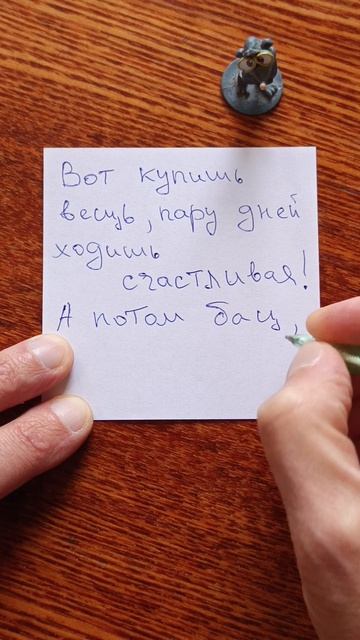 Вот купишь
весць, пару дней
ходишь
счастливая!
А потом бац,